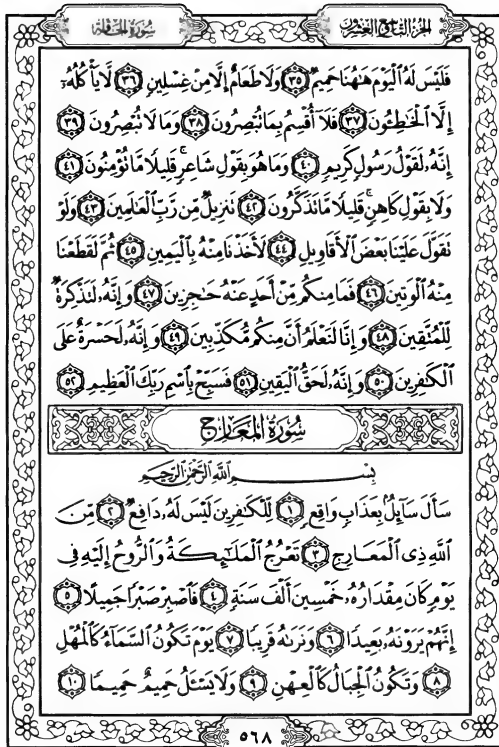 الجزء التاسع والعشرون سورة الحاقة
فَلَيْسَ لَهُ ٱلْيَوْمَ هَٰهُنَا حَمِيمٌ ٣٥ وَلَا طَعَامٌ إِلَّا مِنْ غِسْلِينٍ ٣٦ لَّا يَأْكُلُهُۥٓ
إِلَّا ٱلْخَٰطِـُٔونَ ٣٧ فَلَآ أُقْسِمُ بِمَا تُبْصِرُونَ ٣٨ وَمَا لَا تُبْصِرُونَ ٣٩
إِنَّهُۥ لَقَوْلُ رَسُولٍ كَرِيمٍ ٤٠ وَمَا هُوَ بِقَوْلِ شَاعِرٍ ۚ قَلِيلًا مَّا تُؤْمِنُونَ ٤١
وَلَا بِقَوْلِ كَاهِنٍ ۚ قَلِيلًا مَّا تَذَكَّرُونَ ٤٢ تَنزِيلٌ مِّن رَّبِّ ٱلْعَٰلَمِينَ ٤٣ وَلَوْ
تَقَوَّلَ عَلَيْنَا بَعْضَ ٱلْأَقَاوِيلِ ٤٤ لَأَخَذْنَا مِنْهُ بِٱلْيَمِينِ ٤٥ ثُمَّ لَقَطَعْنَا
مِنْهُ ٱلْوَتِينَ ٤٦ فَمَا مِنكُم مِّنْ أَحَدٍ عَنْهُ حَٰجِزِينَ ٤٧ وَإِنَّهُۥ لَتَذْكِرَةٌ
لِّلْمُتَّقِينَ ٤٨ وَإِنَّا لَنَعْلَمُ أَنَّ مِنكُم مُّكَذِّبِينَ ٤٩ وَإِنَّهُۥ لَحَسْرَةٌ عَلَى
ٱلْكَٰفِرِينَ ٥٠ وَإِنَّهُۥ لَحَقُّ ٱلْيَقِينِ ٥١ فَسَبِّحْ بِٱسْمِ رَبِّكَ ٱلْعَظِيمِ ٥٢
سُورَةُ المَعَارِجِ
بِسْمِ ٱللَّهِ ٱلرَّحْمَٰنِ ٱلرَّحِيمِ
سَأَلَ سَآئِلٌۢ بِعَذَابٍ وَاقِعٍ ١ لِّلْكَٰفِرِينَ لَيْسَ لَهُۥ دَافِعٌ ٢ مِّنَ
ٱللَّهِ ذِى ٱلْمَعَارِجِ ٣ تَعْرُجُ ٱلْمَلَٰٓئِكَةُ وَٱلرُّوحُ إِلَيْهِ فِى
يَوْمٍ كَانَ مِقْدَارُهُۥ خَمْسِينَ أَلْفَ سَنَةٍ ٤ فَٱصْبِرْ صَبْرًا جَمِيلًا ٥
إِنَّهُمْ يَرَوْنَهُۥ بَعِيدًا ٦ وَنَرَىٰهُ قَرِيبًا ٧ يَوْمَ تَكُونُ ٱلسَّمَآءُ كَٱلْمُهْلِ
٨ وَتَكُونُ ٱلْجِبَالُ كَٱلْعِهْنِ ٩ وَلَا يَسْـَٔلُ حَمِيمٌ حَمِيمًا ١٠
٥٦٨